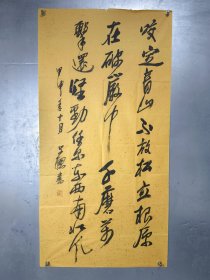 咬定青山不放松立根原
在破岩中千磨万
击还坚劲任尔东西南北风
甲申年十月